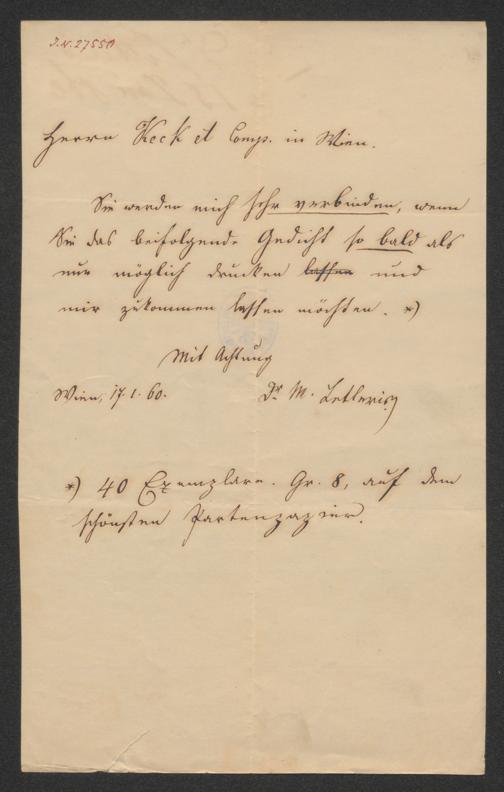 J.N. 27550
Herrn Keck et Comp. in Wien.
Sie werden mich sehr verbinden, wenn
Sie das beifolgende Gedicht so bald als
nur möglich drucken lassen und
mir zukommen lassen möchten. *)
Mit Achtung
Wien, 17.1.60. Dr M. Letteris
*) 40 Exemplare. Gr. 8, auf dem
schönsten Partenpapier.